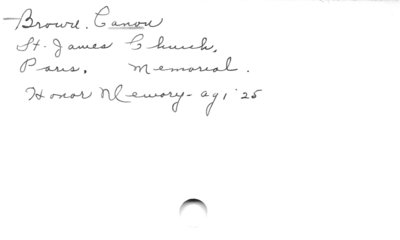 Brown. Canon
St. James Church,
Paris. Memorial.
Honor Memory - ag 1 '25